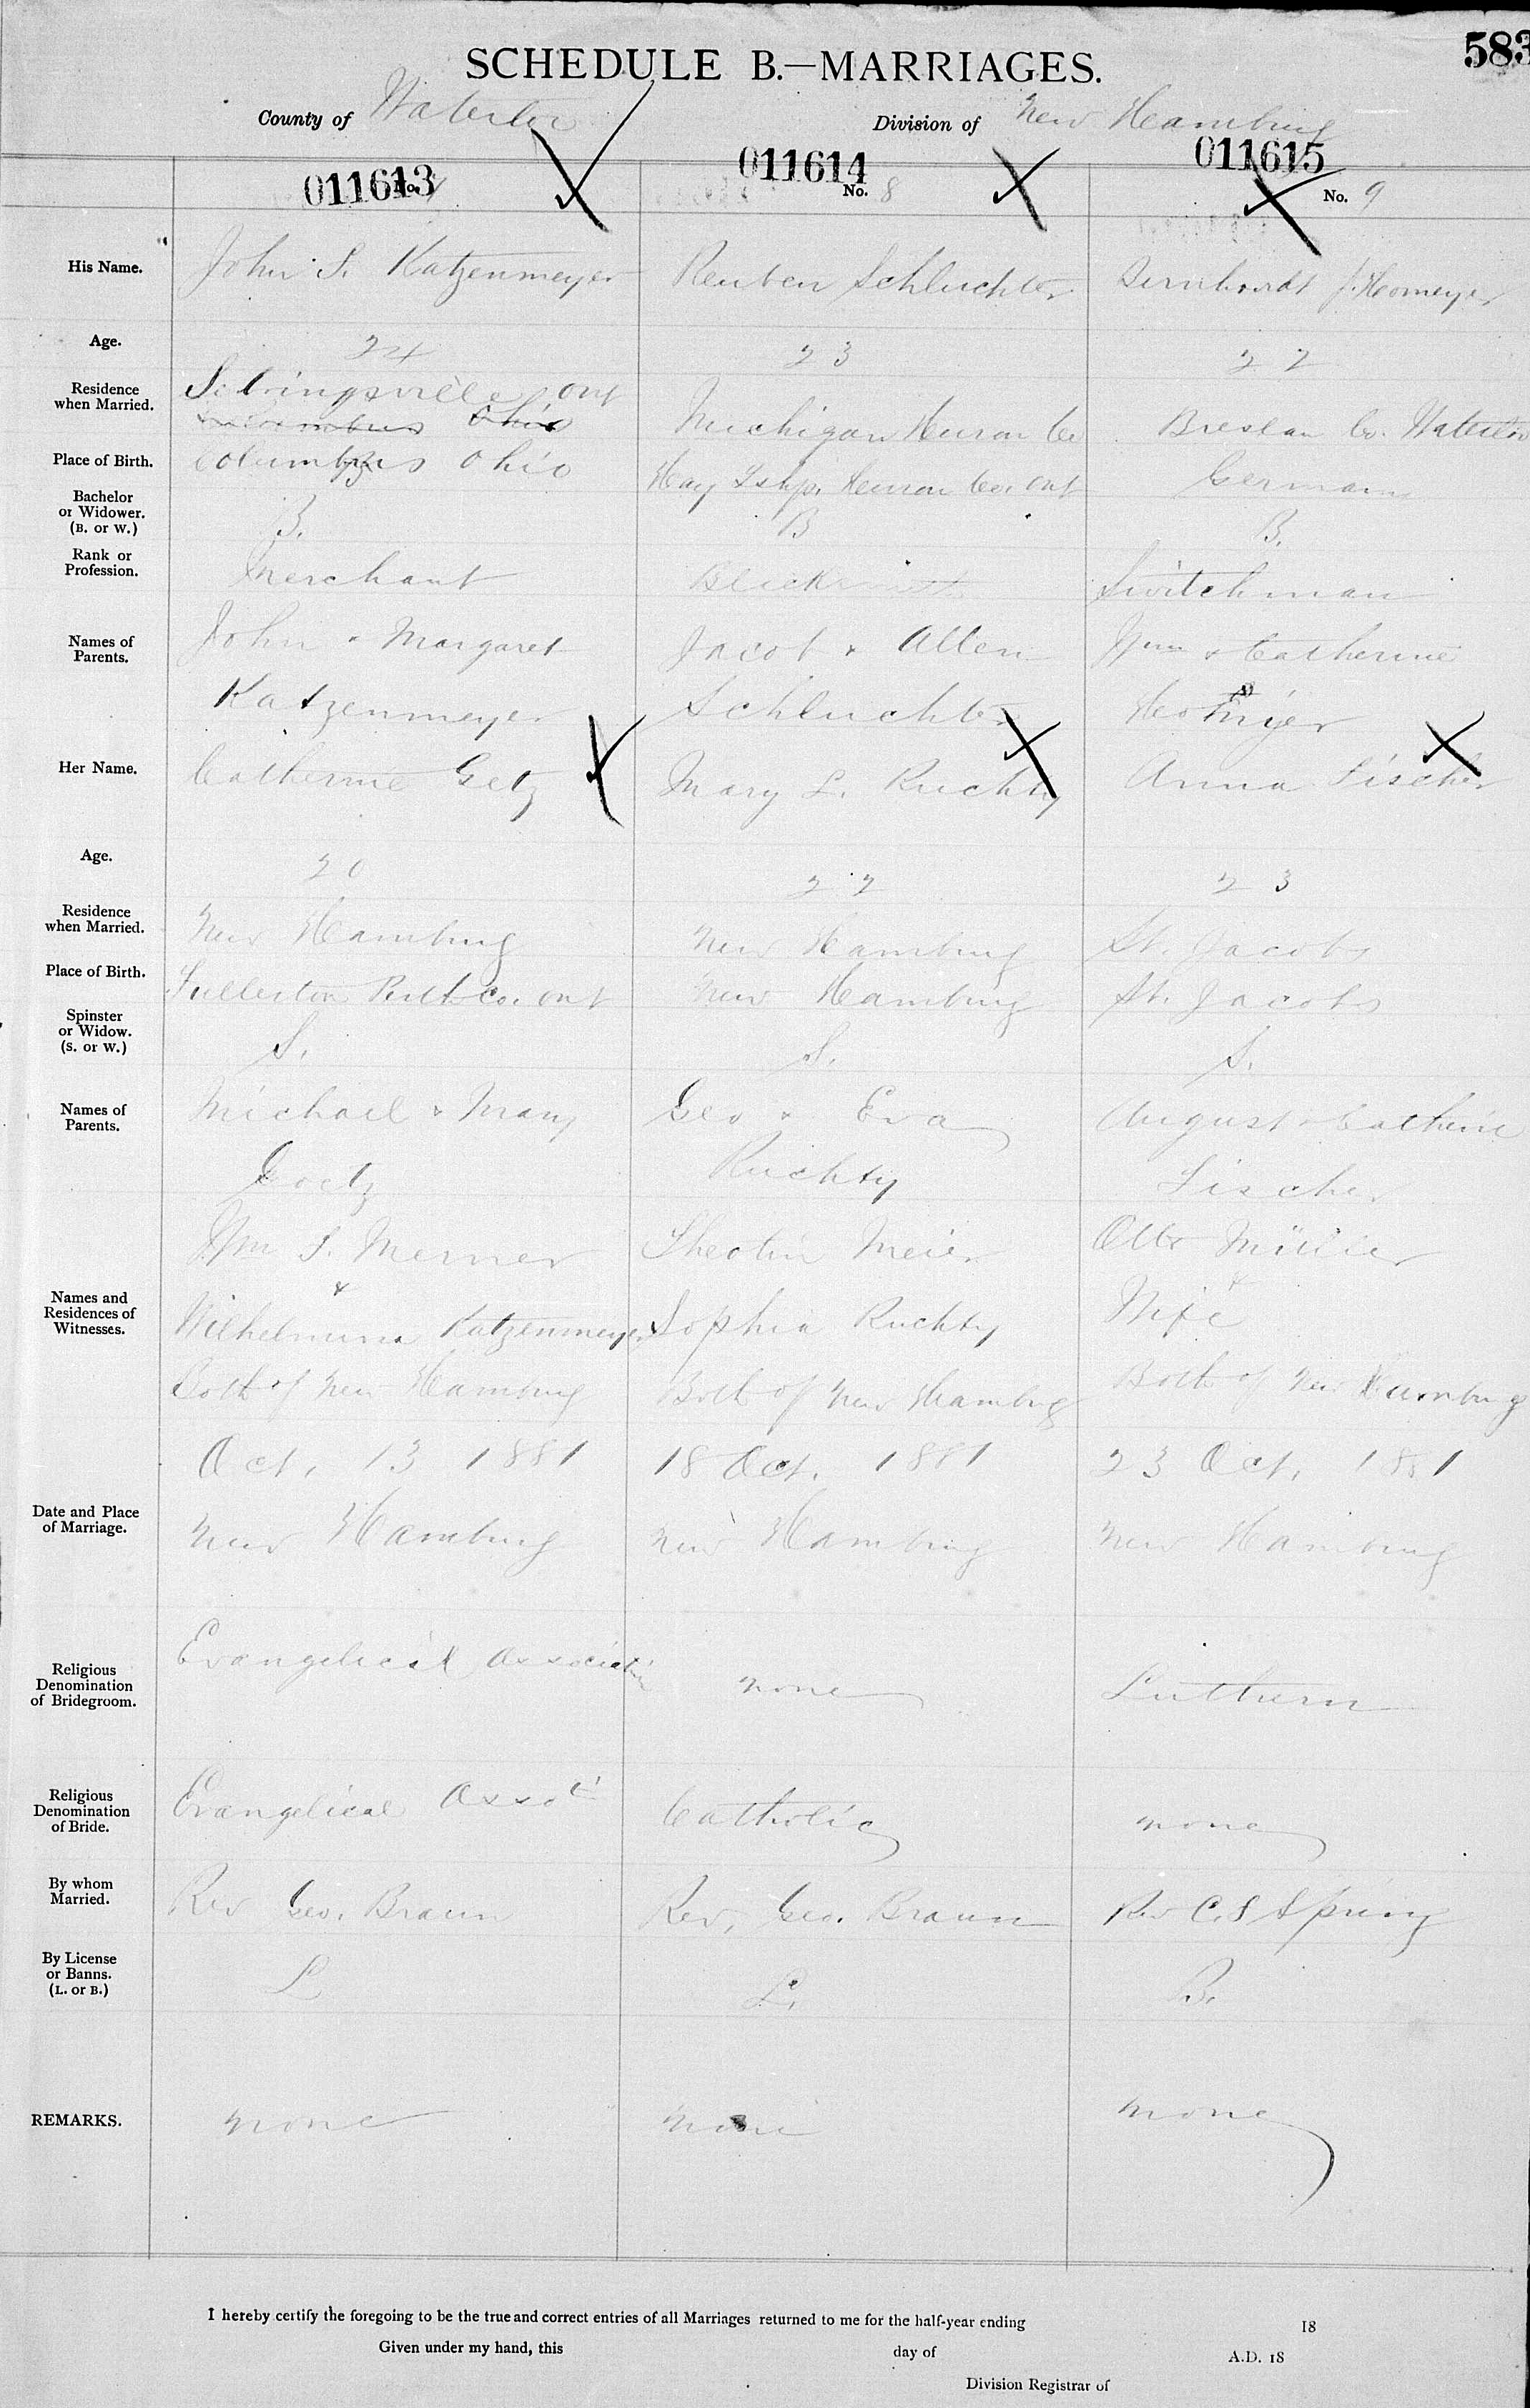 583
SCHEDULE B.—MARRIAGES.
County of Waterloo Division of New Hamburg
011613 No. 011614 No. 8 011615 No. 9
His Name. John S. Katzenmeyer Reuben Schluchter J.
Age. 24 23 22
Residence when Married. Sebringsville, Ont Michigan Huron Co Breslau Co. Waterloo
Columbus Ohio
Place of Birth. Columbus Ohio Hay Tshp. Huron Co. Ont Germany
Bachelor or Widower. (B. or W.) B. B B.
Rank or Profession. Merchant Switchman
Names of Parents. John & Margaret Jacob & Allen Wm & Catherine
Katzenmeyer Schluchter
Her Name. Catherine Getz Mary L. Ruchty Anna Fischer
Age. 20 22 23
Residence when Married. New Hamburg New Hamburg St. Jacobs
Place of Birth. Fullerton Perth Co. Ont New Hamburg St. Jacobs
Spinster or Widow. (S. or W.) S. S. S.
Names of Parents. Michael & Mary Geo & Eva August & Catherine
Goetz Ruchty Fischer
Wm S. Merner Meier Otto Müller
& &
Names and Residences of Witnesses. Wilhelmina Katzenmeyer Sophia Ruchty Wife
Both of New Hamburg Both of New Hamburg Both of New Hamburg
Oct, 13 1881 18 Oct. 1881 23 Oct, 1881
Date and Place of Marriage. New Hamburg New Hamburg New Hamburg
Religious Denomination of Bridegroom. Evangelical Association none Luthern
Religious Denomination of Bride. Evangelical Catholic none
By whom Married. Rev Geo. Braun Rev, Geo. Braun Rev C. S Spring
By License or Banns. (L. or B.) L L. B.
REMARKS. none none none
I hereby certify the foregoing to be the true and correct entries of all Marriages returned to me for the half-year ending 18
Given under my hand, this day of A.D. 18
Division Registrar of